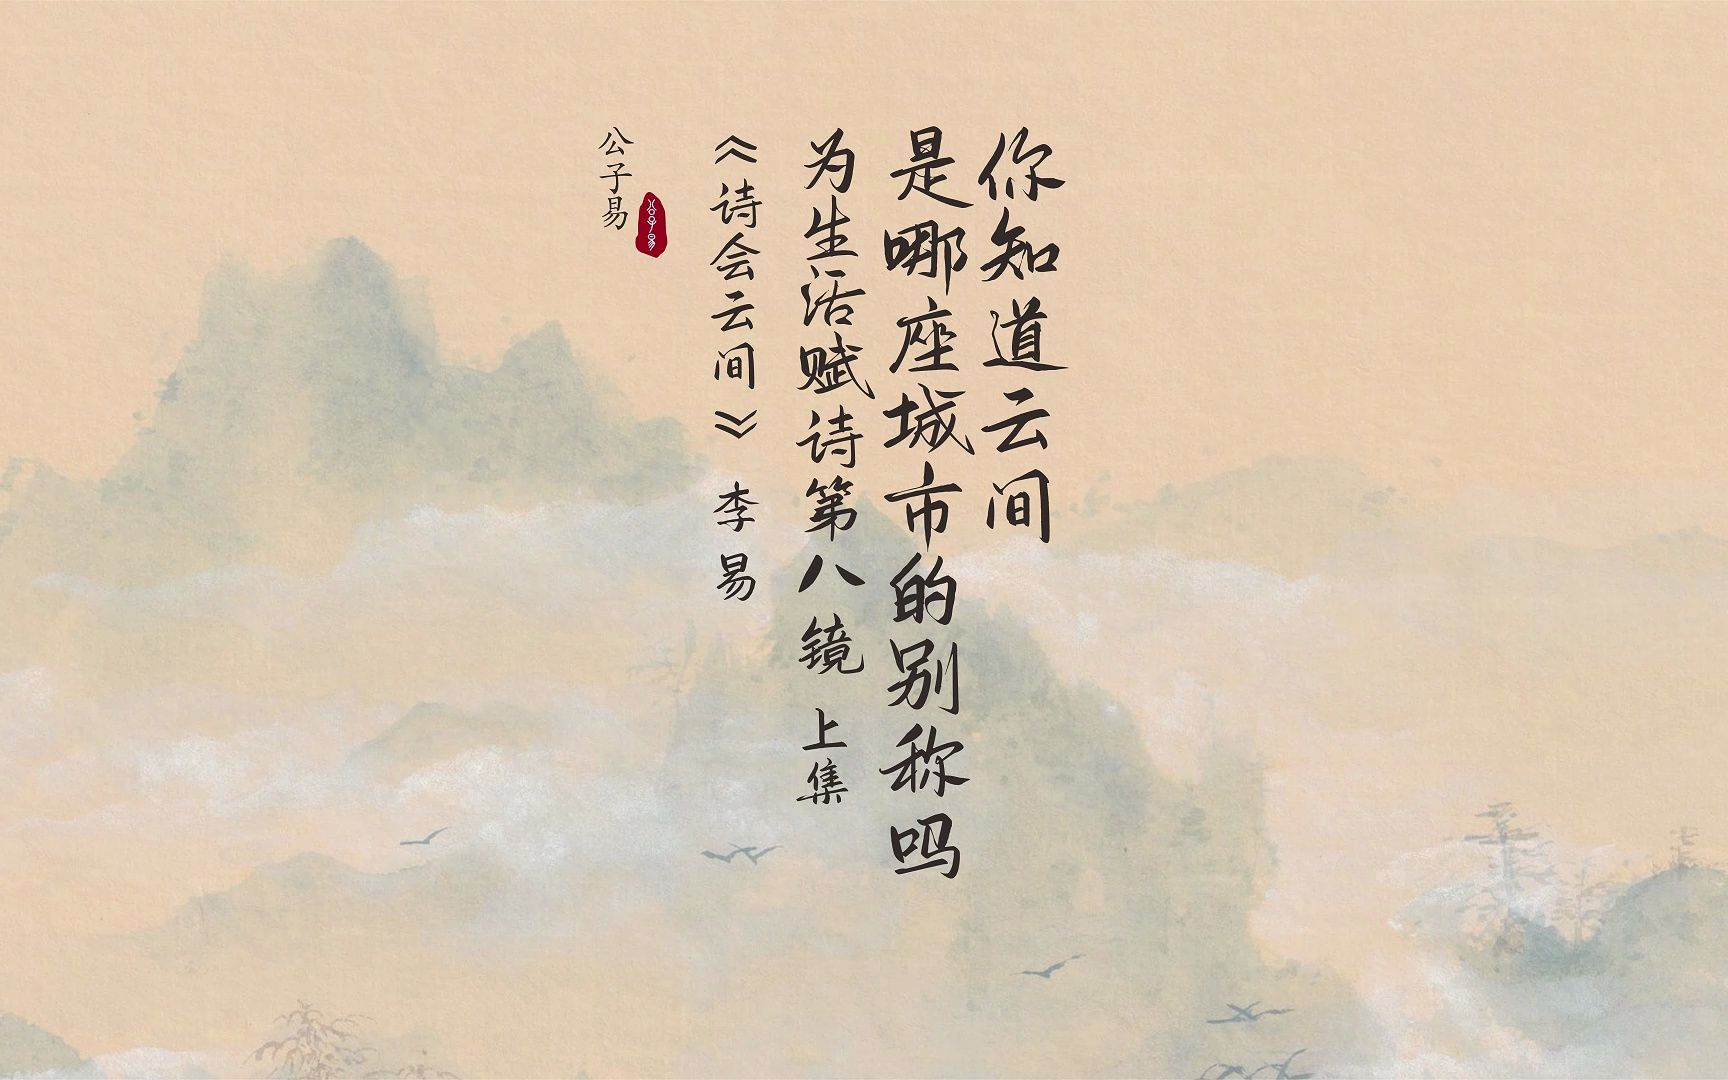 你知道云间
是哪座城市的别称吗
为生活赋诗第八镜 上集
《诗会云间》 李易
公子易
公子易